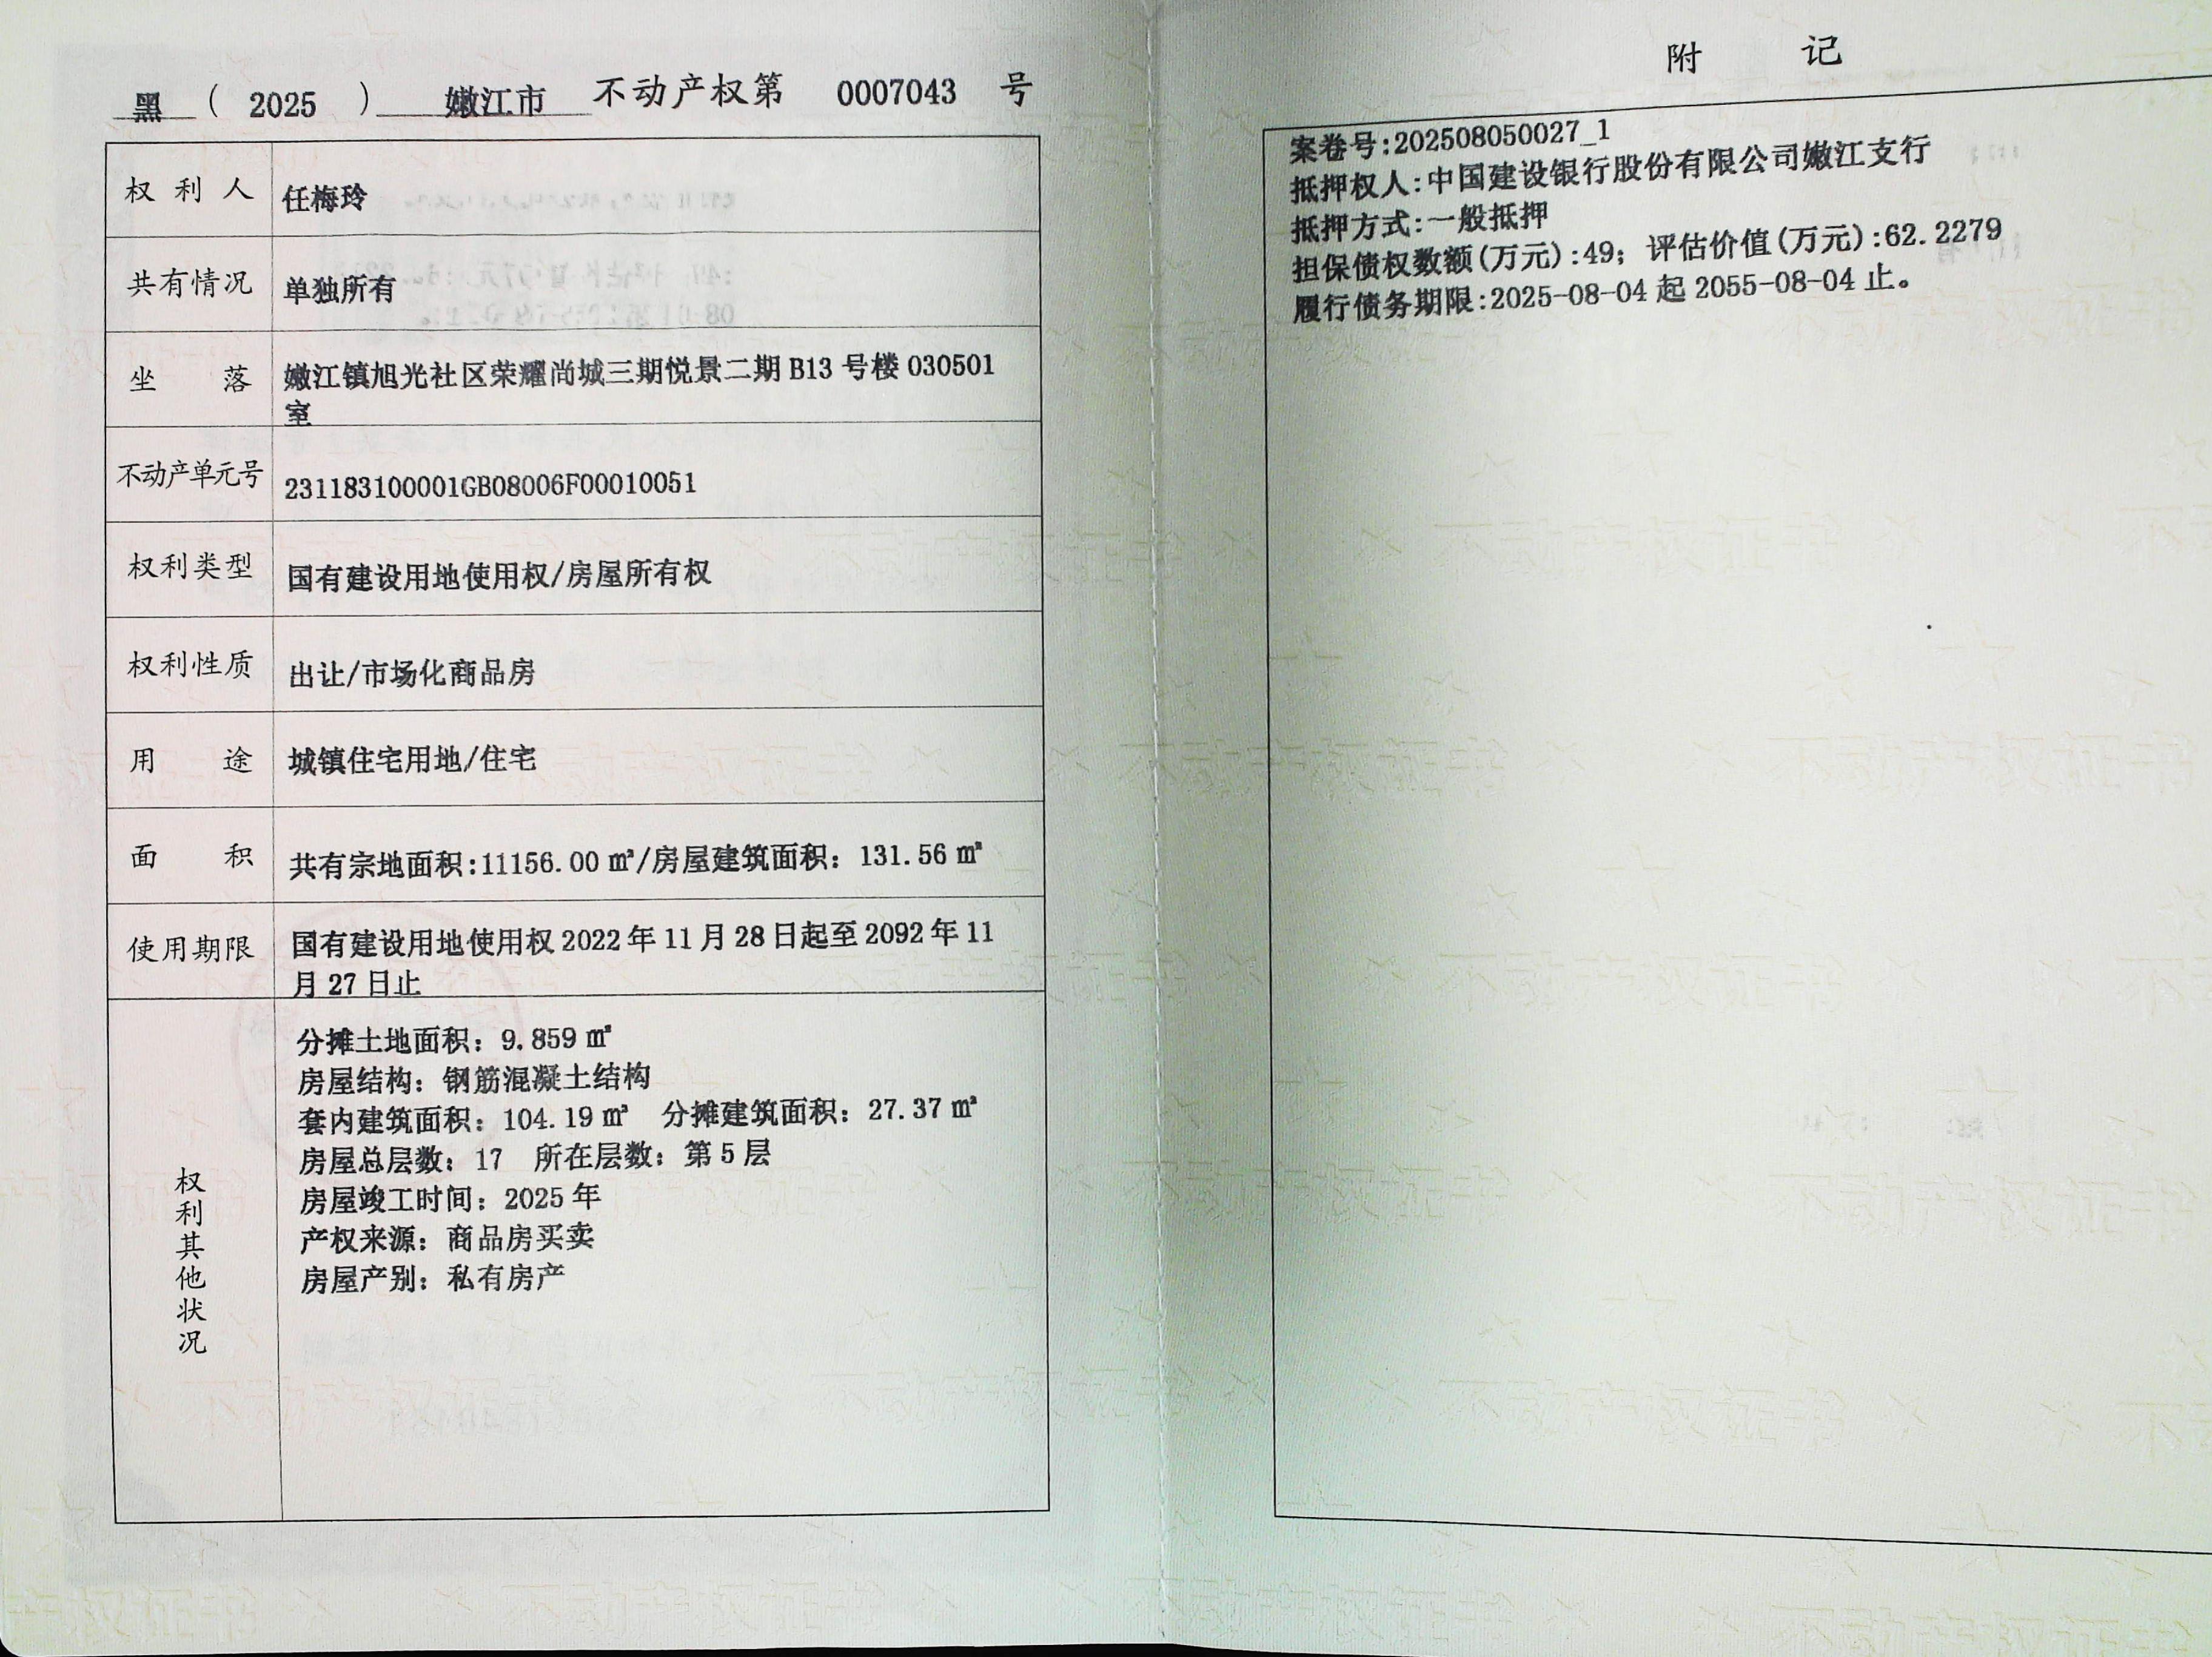 黑（2025）嫩江市 不动产权第 0007043 号
权利人 任梅玲
共有情况 单独所有
坐落 嫩江镇旭光社区荣耀尚城三期悦景二期 B13 号楼 030501
室
不动产单元号 231183100001GB08006F00010051
权利类型 国有建设用地使用权/房屋所有权
权利性质 出让/市场化商品房
用途 城镇住宅用地/住宅
面积 共有宗地面积:11156.00 ㎡/房屋建筑面积：131.56 ㎡
使用期限 国有建设用地使用权 2022 年 11 月 28 日起至 2092 年 11
月 27 日止
权利其他状况
分摊土地面积：9.859 ㎡
房屋结构：钢筋混凝土结构
套内建筑面积：104.19 ㎡ 分摊建筑面积：27.37 ㎡
房屋总层数：17 所在层数：第 5 层
房屋竣工时间：2025 年
产权来源：商品房买卖
房屋产别：私有房产
附记
案卷号:202508050027_1
抵押权人:中国建设银行股份有限公司嫩江支行
抵押方式:一般抵押
担保债权数额(万元):49；评估价值(万元):62.2279
履行债务期限:2025-08-04 起 2055-08-04 止。